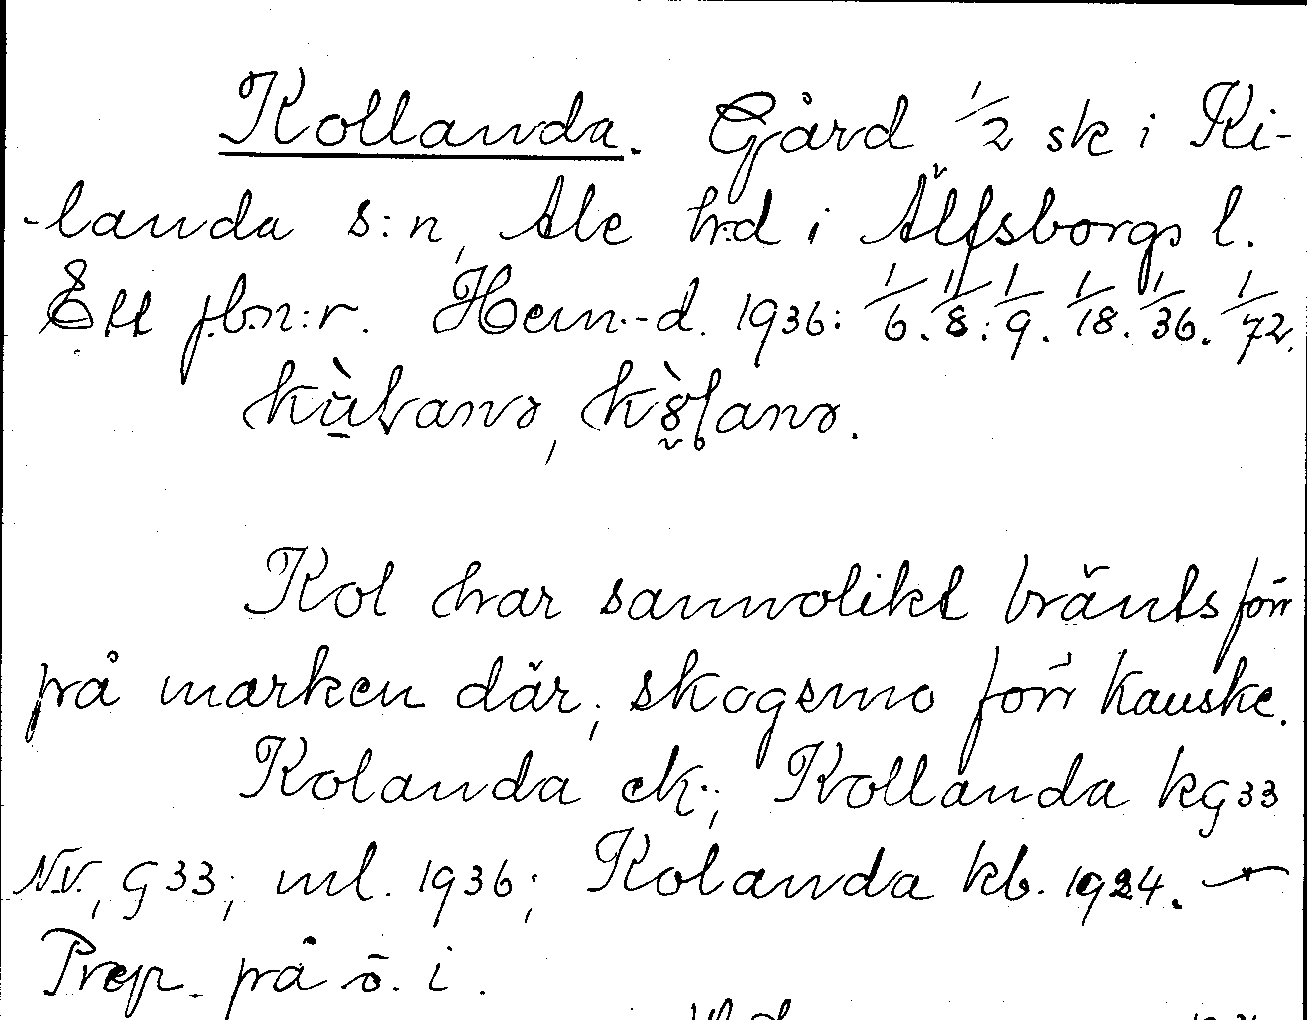 Kollanda. Gård 1/2 sk i Ki-
-landa s:n, Ale h:d i Älfsborgs l.
Ett jbn:r. Hem.-d. 1936: 1/6. 1/8. 1/9. 1/18. 1/36. 1/72.
Kol har sannolikt bränts förr
på marken där; skogsmo förr kanske.
Kolanda ek.; Kollanda kg33
NV., G33; ml. 1936; Kolanda kb. 1924. —
Prep. på o. i.